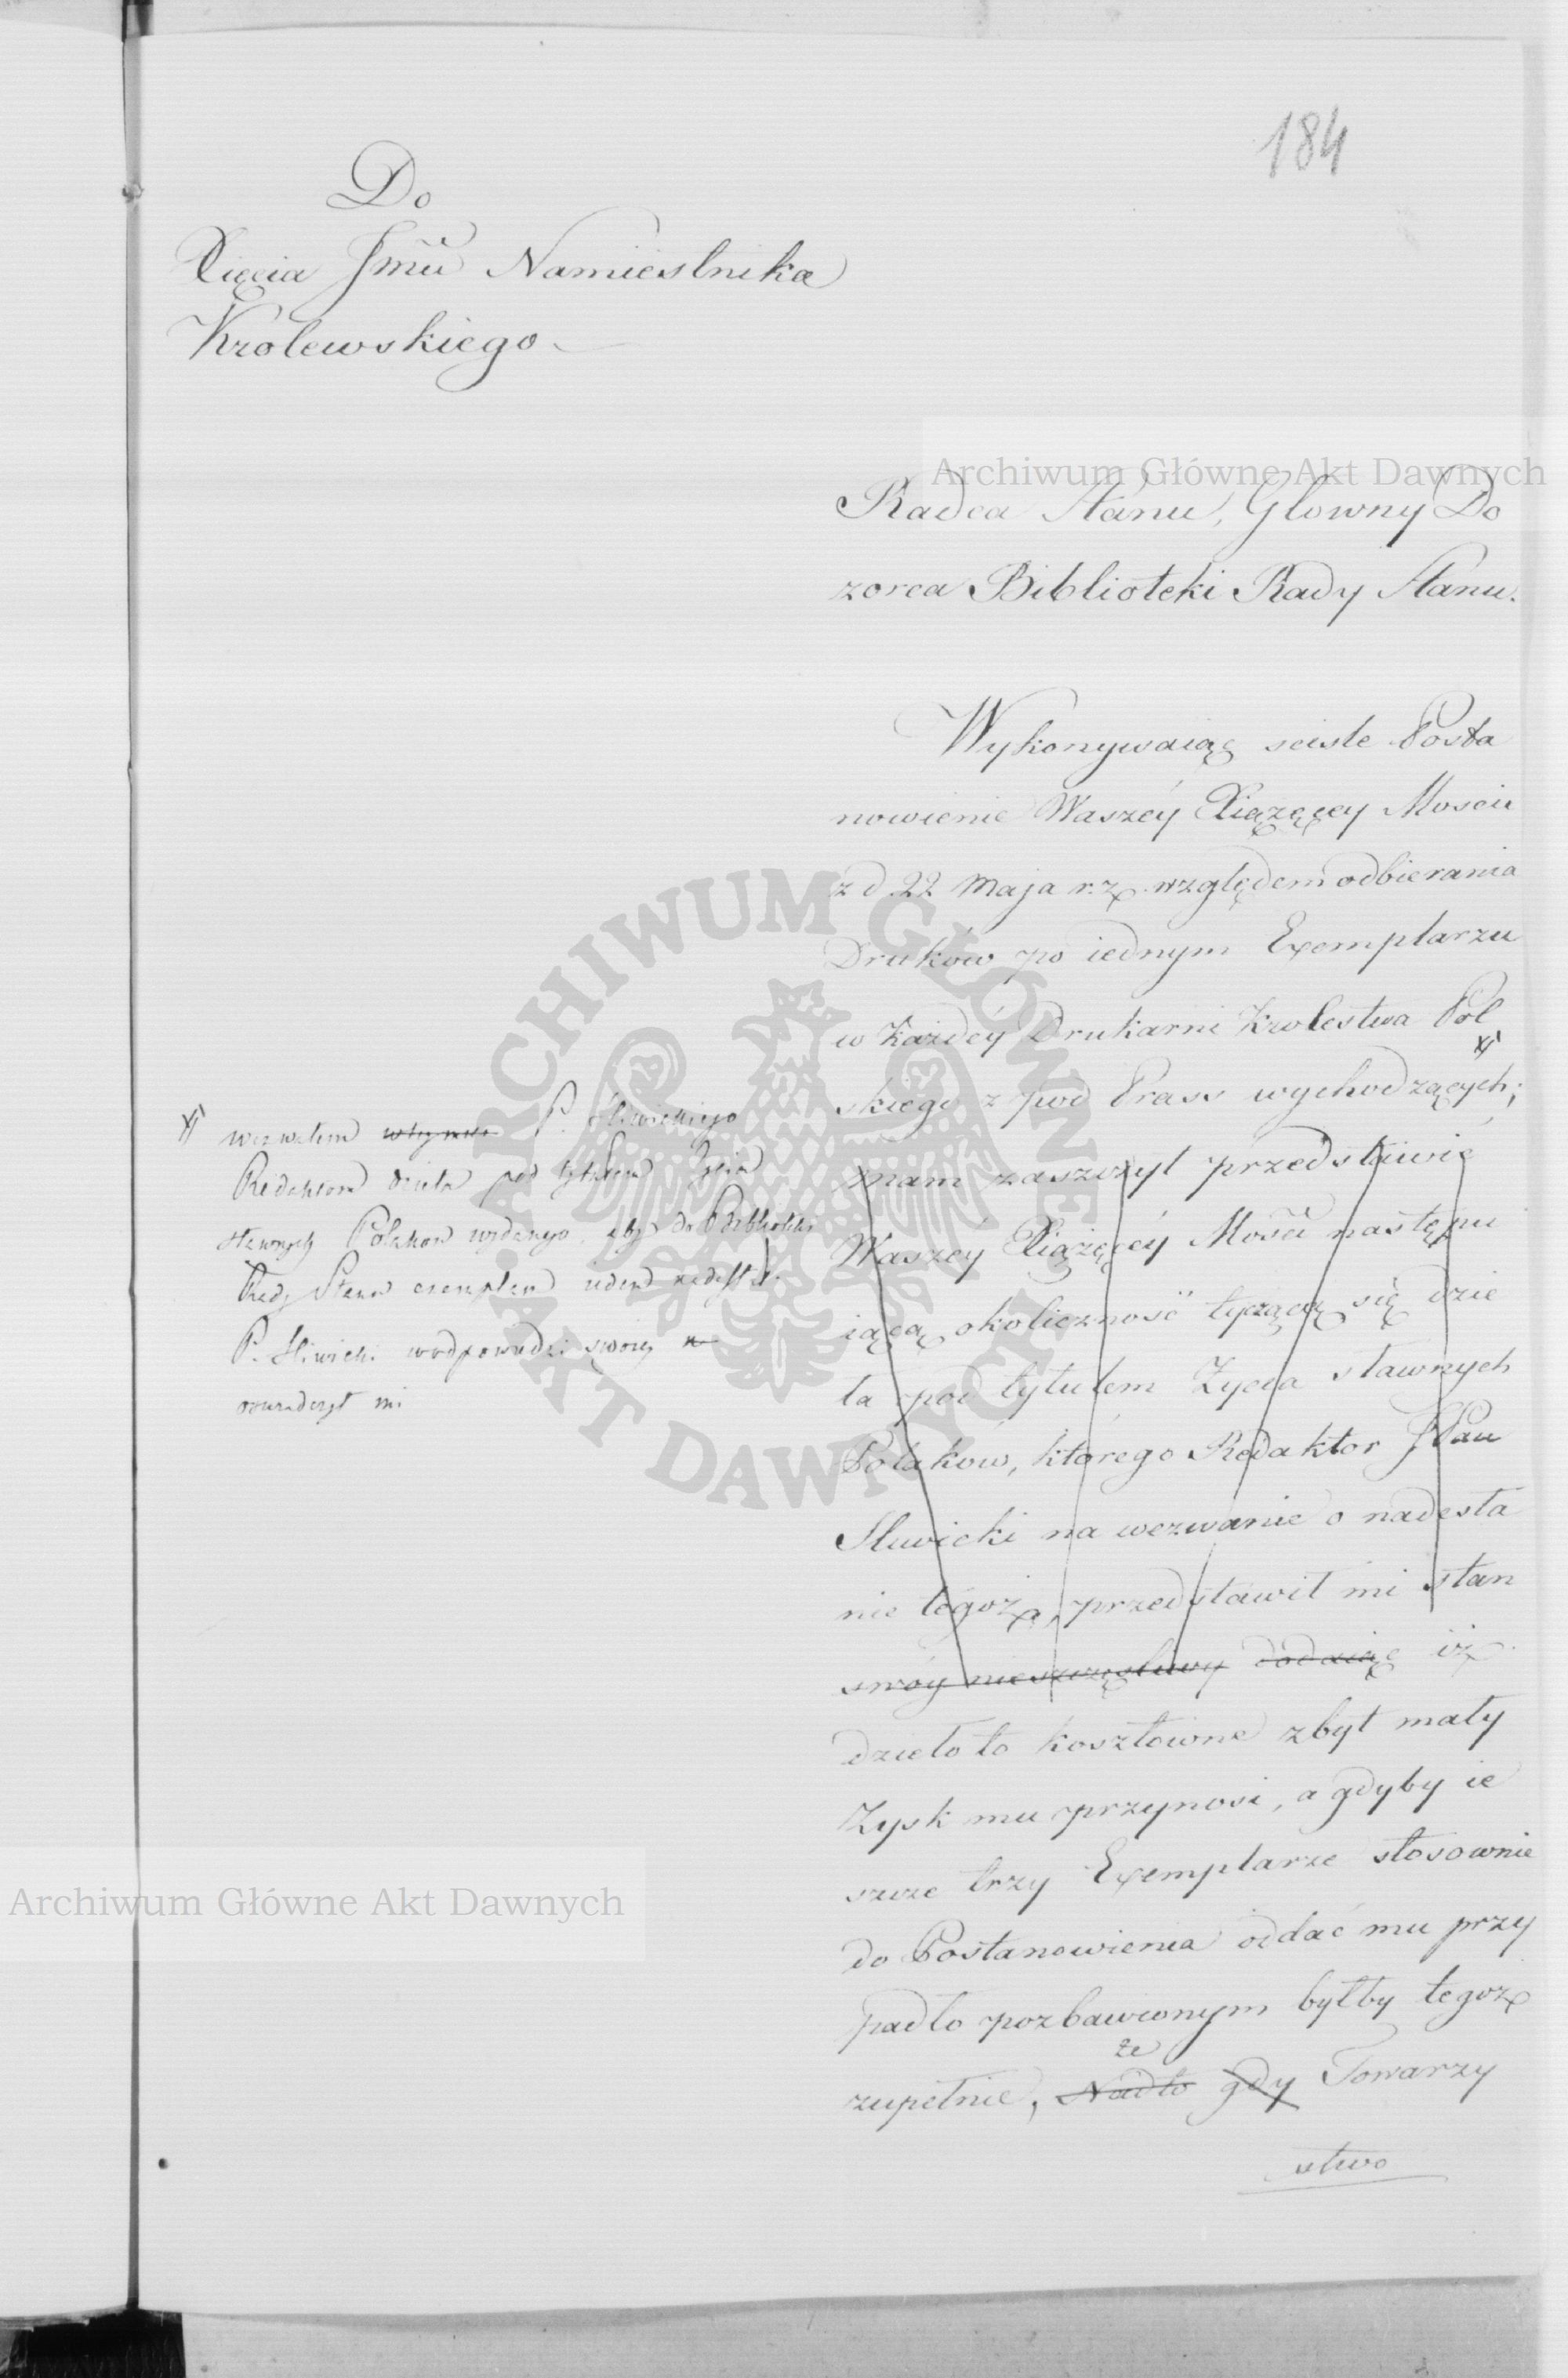 184
Do
Xięcia Jmci Namiestnika
Krolewskiego
Archiwum Główne Akt Dawnych
Radca Stanu, Glowny Do
zorca Biblioteki Rady Stanu.
Wykonywaiąc sciśle Posta
nowienie Waszéy Xiążęcey Mosci
z d. 22 Maja r. z. względem odbierania
Druków po iednym Exemplarzu
w każdéy Drukarni Krolestwa Pol
skiego z pod Prass wychodzących;
mam zaszczyt przedstawić
Waszéy Xiążęcéy Mości następu
iącą okoliczność tyczącą się dzie
ła pod tytułem Życia sławnych
Polaków, którego Redaktor JPan
Sliwicki na wezwanie o nadesła
nie tegoż, przedstawił mi stan
swóy nieszczęsliwy dodaiąc iż
dzieło to kosztowne zbyt mały
Zysk mu przynosi, a gdyby ie
szcze trzy Exemplarze stosownie
do Postanowienia oddać mu przy
padło pozbawionym byłby tegoż
że
zupełnie, Nadto gdy Towarzy
stwo
wezwałem P. Sliwickiego
Redaktora dzieła pod tytułem Życia
sławnych Polaków wydanego, aby do Biblioteki
Rady Stanu exemplarz ieden nadesłał.
P. Sliwicki w odpowiedzi swoiey
oswiadczył mi
ARCHIWUM GŁÓWNE
AKT DAWNYCH
Archiwum Główne Akt Dawnych